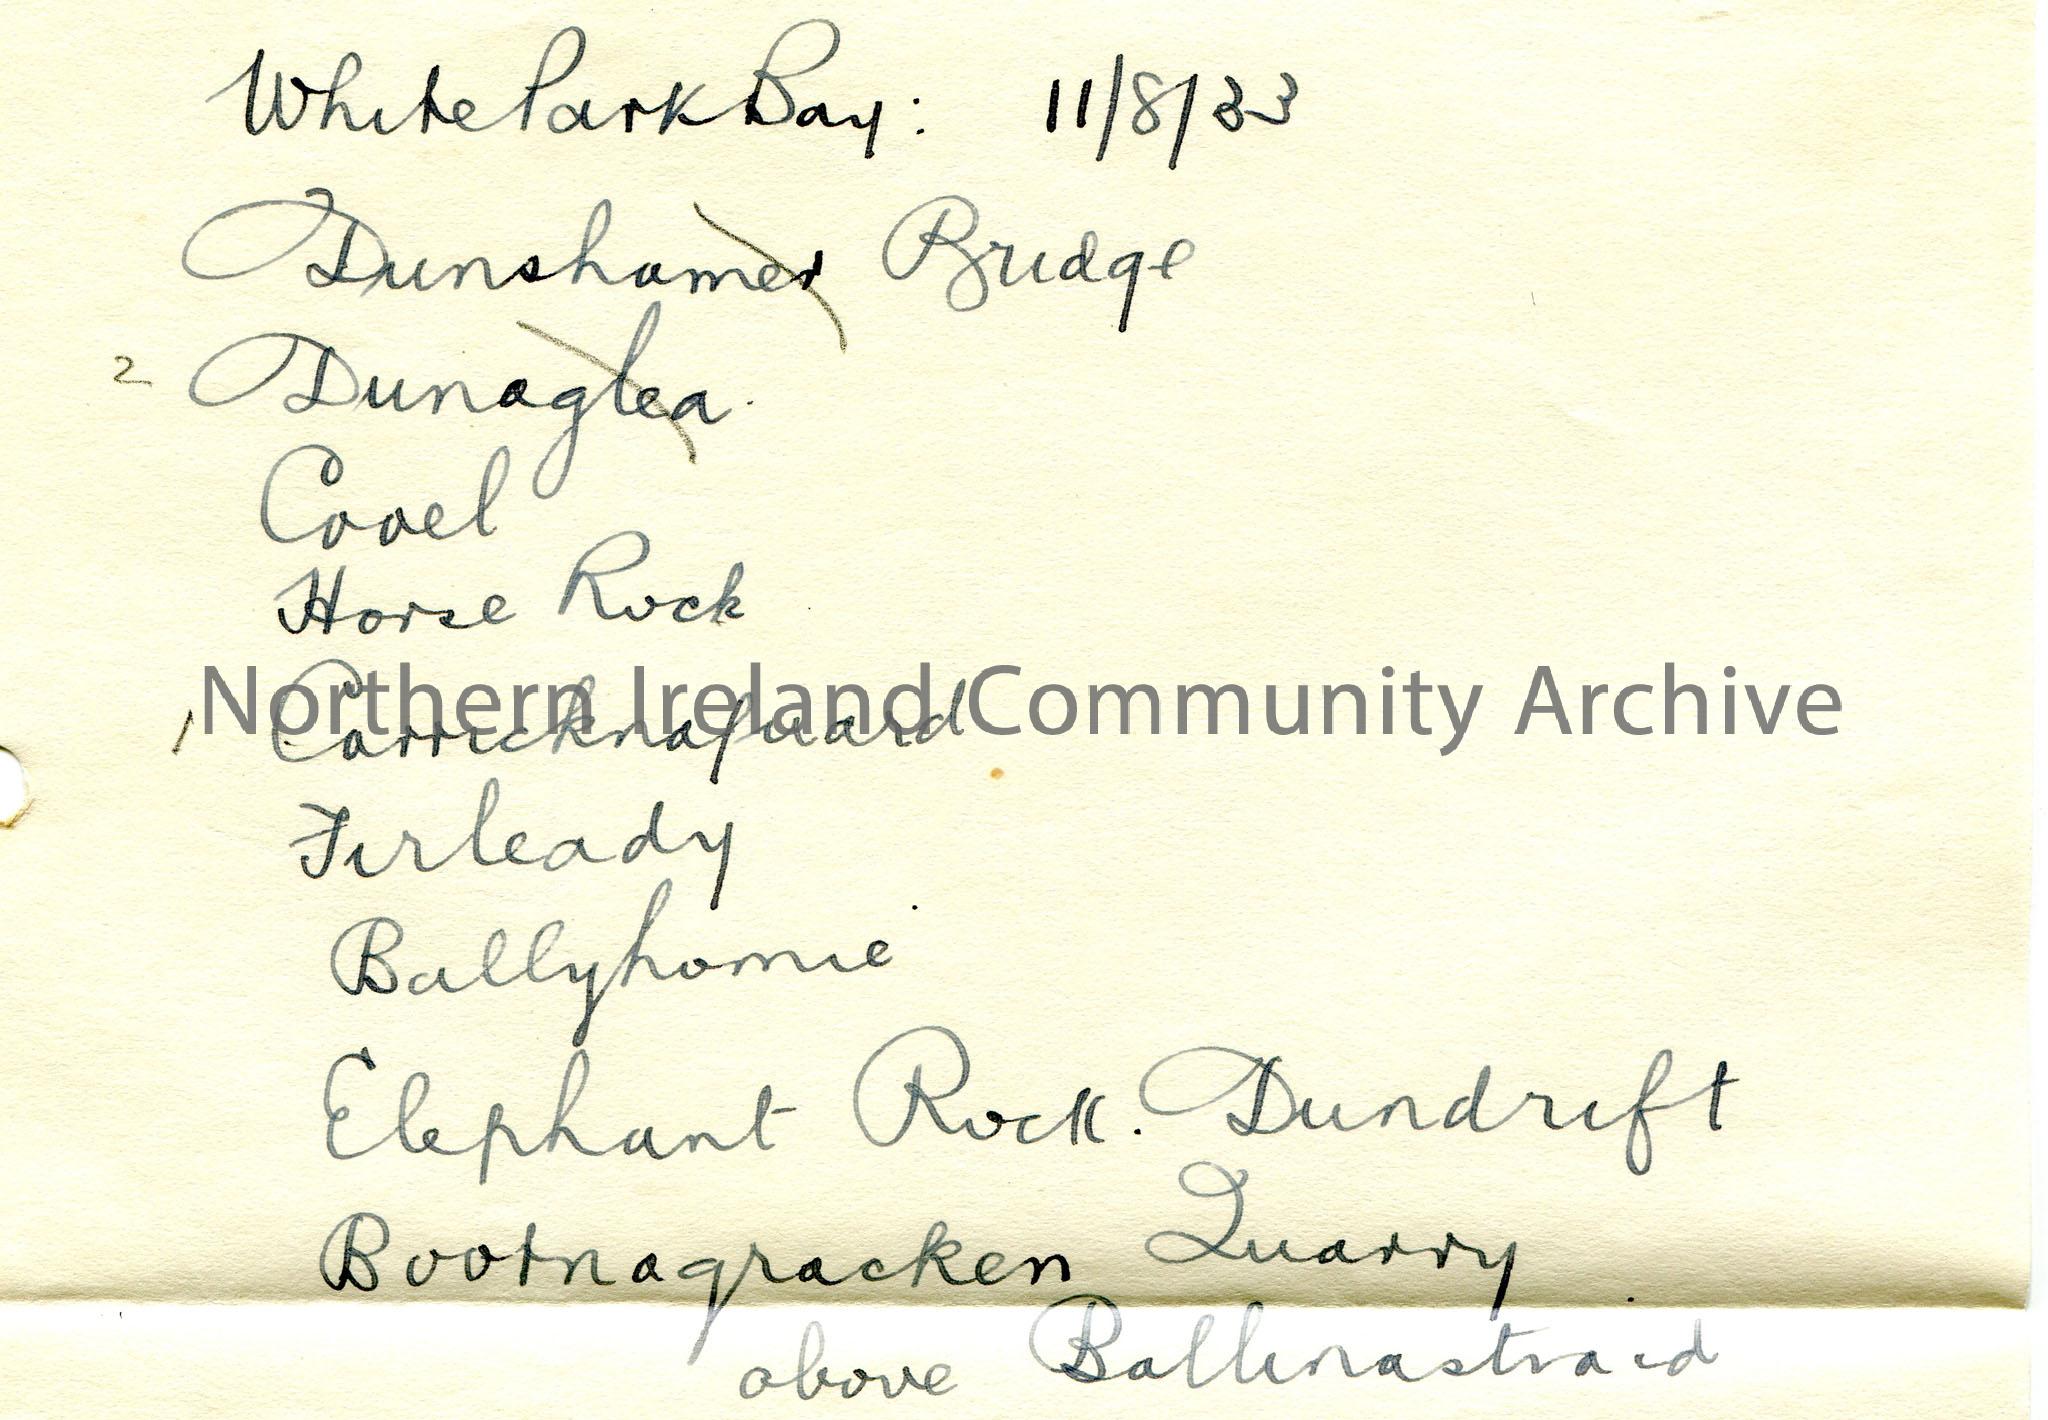 White Park Bay: 11/8/33
Dunshamer Bridge
2 Dunaglea.
Covel
Horse Rock
Northern Ireland Community Archive
1 Carricknafuard
Firleady
Ballyhomie
Elephant Rock. Dundrift
Bootnagracken Quarry
above Ballinastraid